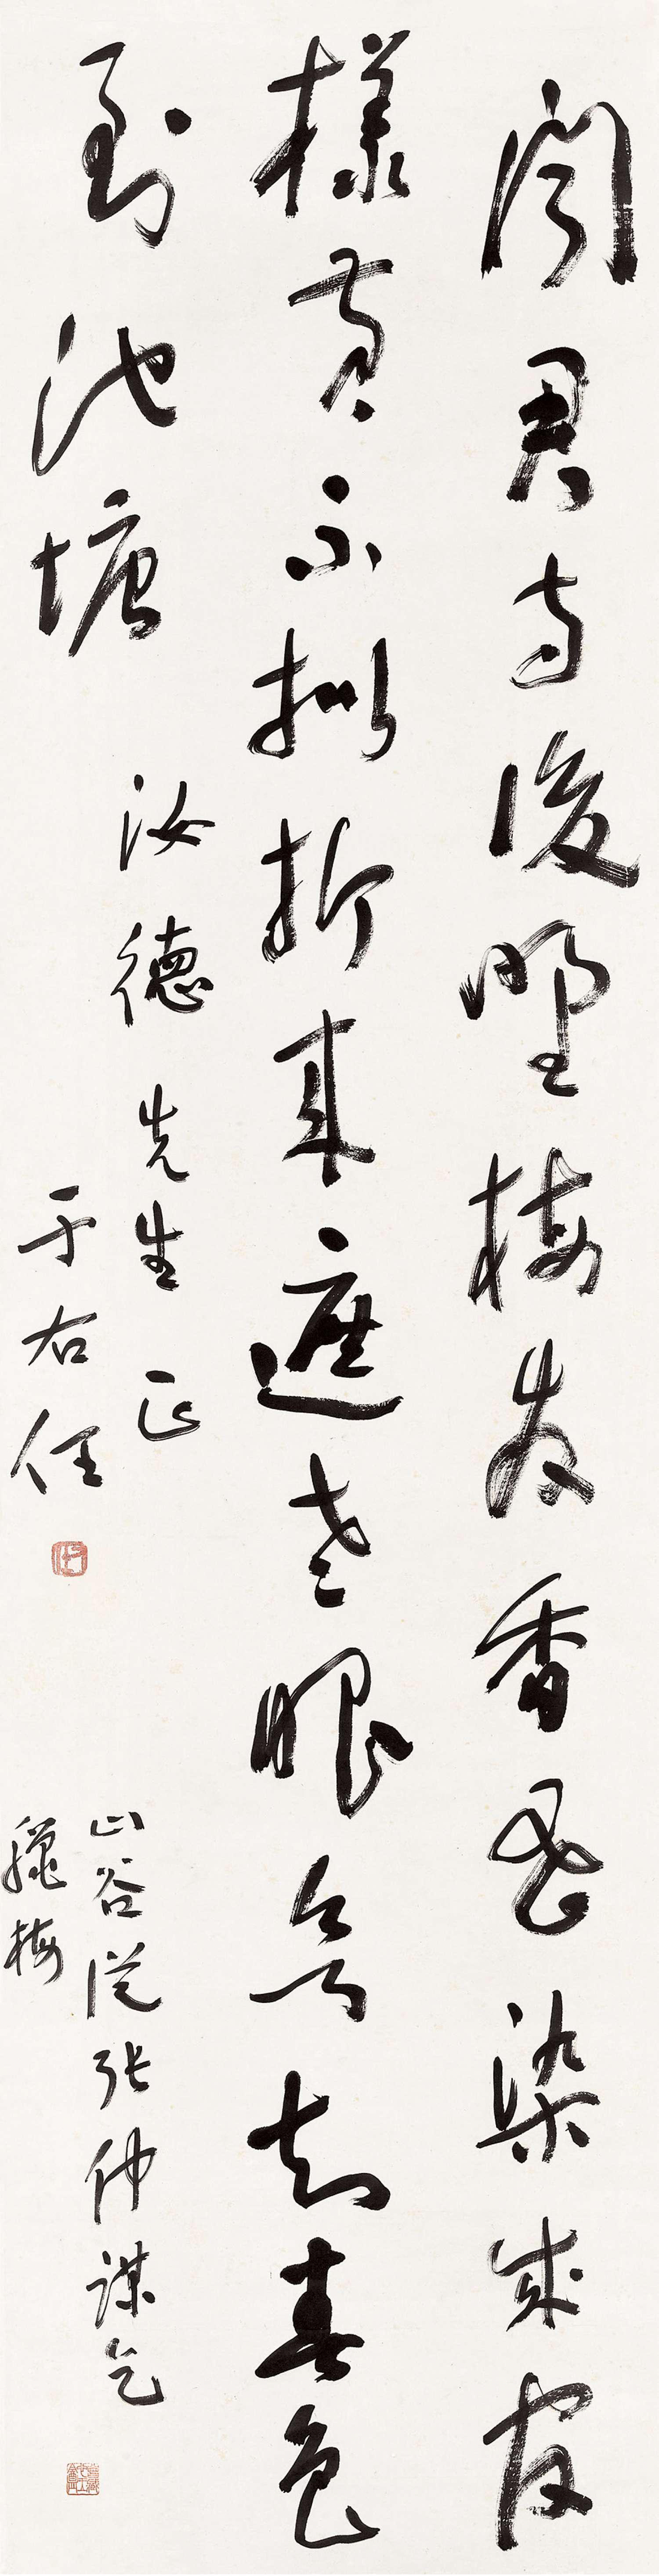 聞君寺後野梅發香蜜染成宮
樣黃不擬折來遮老眼欲知春色
到池塘
汝德先生正
于右任
右任
山谷從張仲謀乞
臘梅